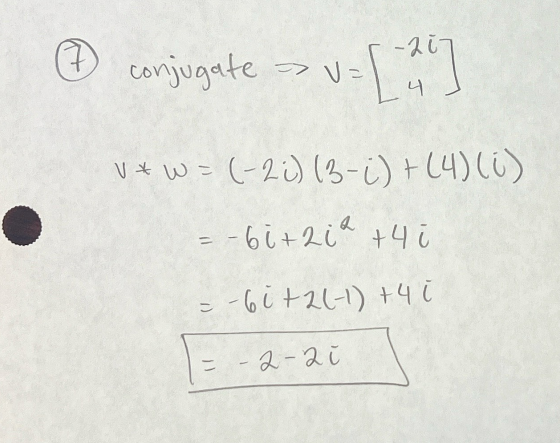 ⑦ conjugate => v = [-2i
4]
v * w = (-2i)(3-i)+(4)(i)
= -6i+2i² +4i
= -6i+2(-1) +4i
= -2-2i